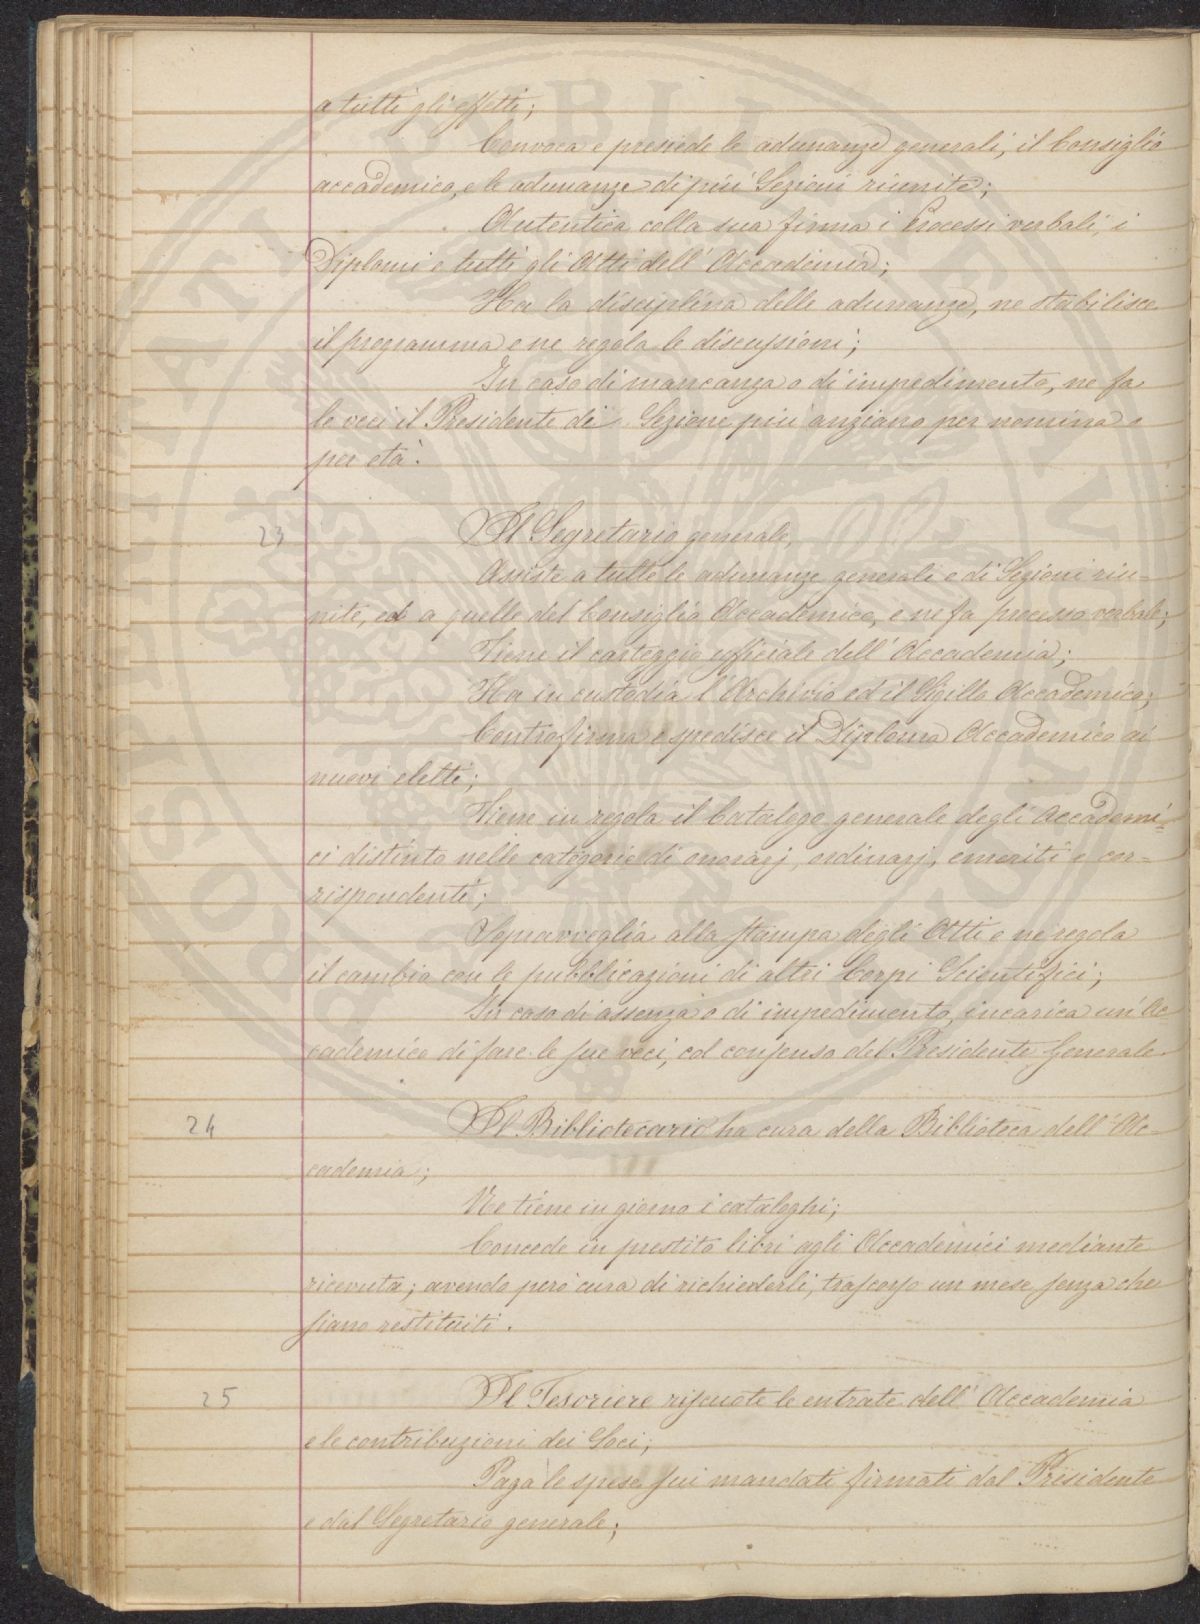 a tutti gli effetti;
Convoca e presiede le adunanze generali, il Consiglio
accademico, e le adunanze di più Sezioni riunite;
Autentica colla sua firma i Processi verbali, i
Diplomi e tutti gli Atti dell' Accademia;
Ha la disciplina delle adunanze, ne stabilisce
il programma e ne regola le discussioni;
In caso di mancanza o di impedimento, ne fa
le veci il Presidente di Sezione più anziano per nomina o
per età.
23 Il Segretario generale,
Assiste a tutte le adunanze generali e di Sezioni riu-
nite, ed a quelle del Consiglio Accademico, e ne fa processo verbale;
Tiene il carteggio officiale dell' Accademia;
Ha in custodia l' Archivio ed il Sigillo Accademico;
Controfirma e spedisce il Diploma Accademico ai
nuovi eletti;
Tiene in regola il Catalogo generale degli Accademi-
ci distinto nelle categorie di onorarj, ordinarj, emeriti e cor-
rispondenti;
Sopravveglia alla stampa degli Atti e ne regola
il cambio con le pubblicazioni di altri Corpi Scientifici;
In caso di assenza o di impedimento, incarica un' Ac-
cademico di fare le sue veci, col consenso del Presidente Generale
24 Il Bibliotecario ha cura della Biblioteca dell' Ac-
cademia;
Ne tiene in giorno i cataloghi;
Concede in prestito libri agli Accademici mediante
ricevuta; avendo però cura di richiederli, trascorso un mese senza che
siano restituiti.
25 Il Tesoriere riscuote le entrate dell' Accademia
e le contribuzioni dei Soci;
Paga le spese sui mandati firmati dal Presidente
e dal Segretario generale;